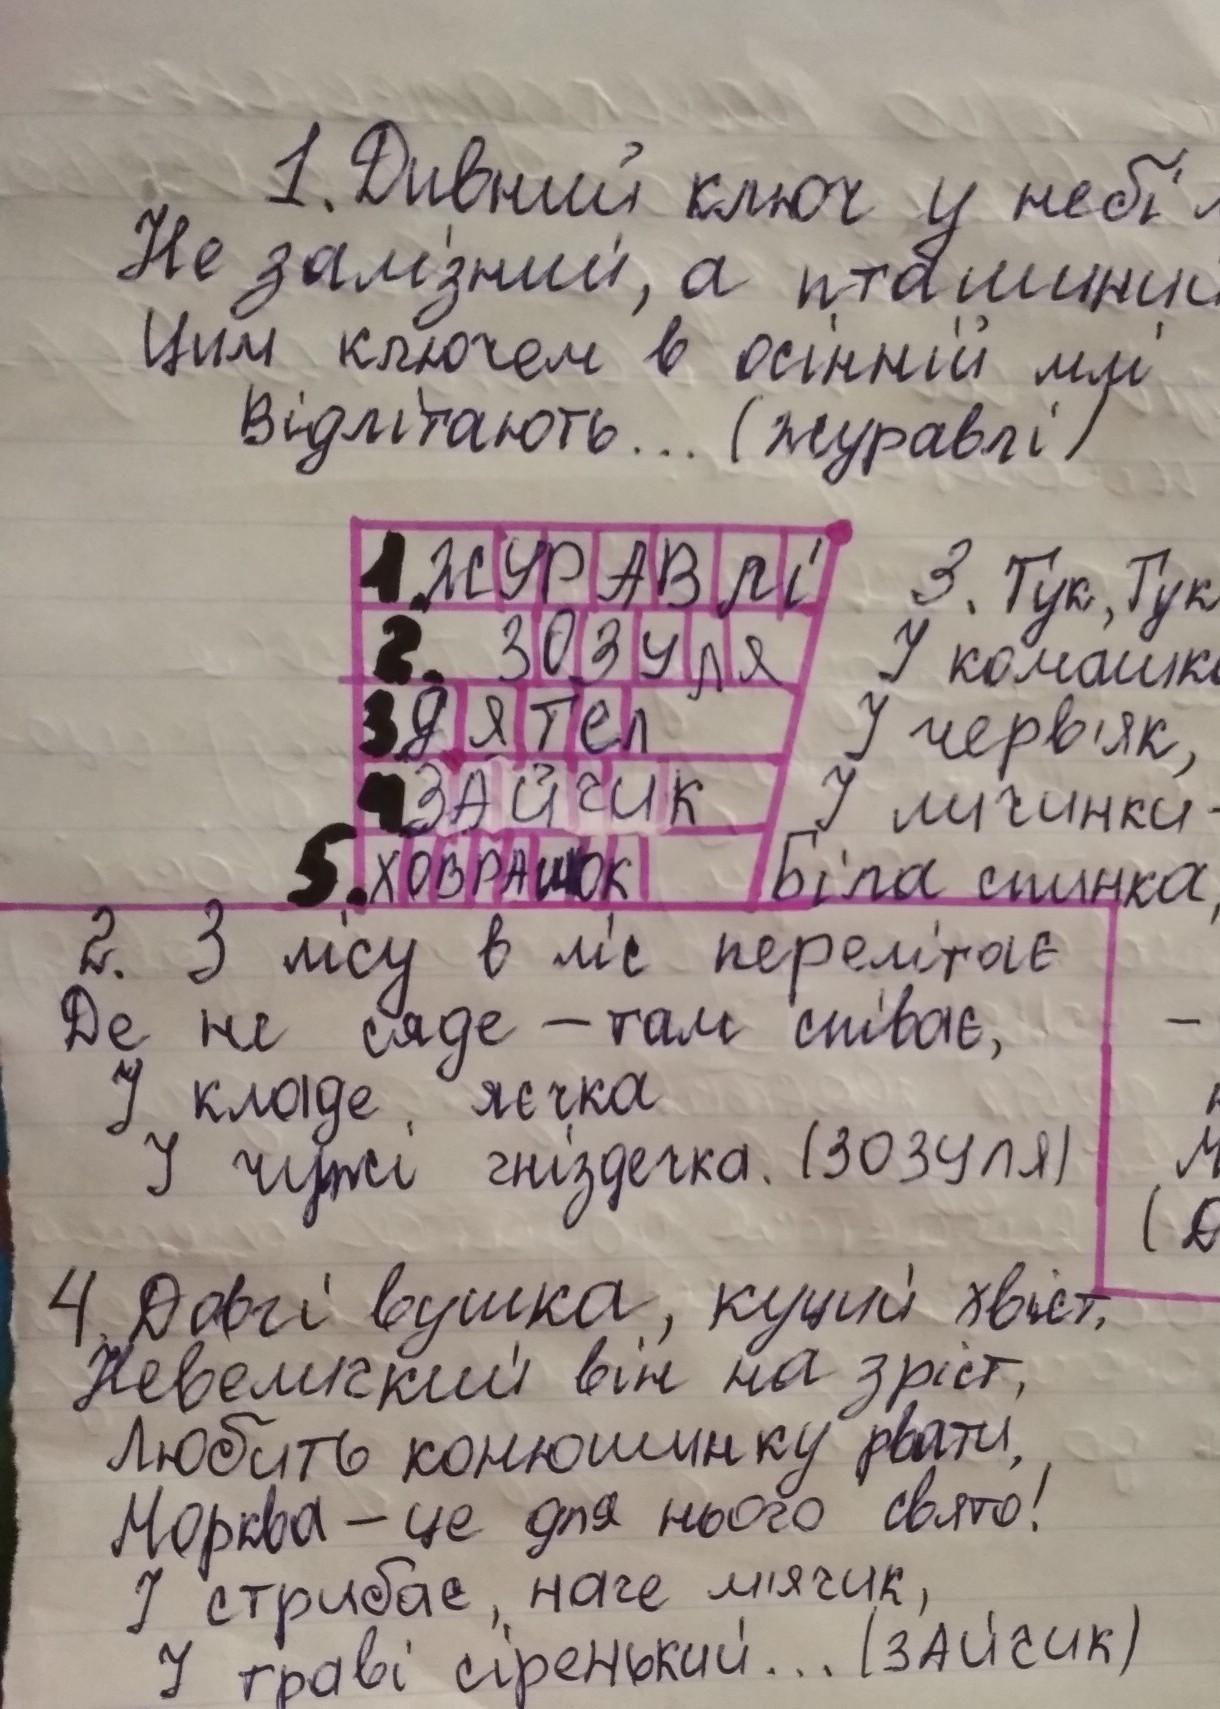 1. Дивний ключ у небі
Не залізний, а пташиний
Цим ключем в осінній млі
Відлітають... (журавлі)
1. ЖУРАВлі
2. ЗОЗУля
3 ДЯТЕл
4 ЗАЙЧИК
5. ХОВРАШОК
3. Тук, Тук
І комашка
І черв'як,
І личинки-
Біла спинка,
2. З лісу в ліс перелітає
Де не сяде - там співає,
І кладе яєчка
У чужі гніздечка. (ЗОЗУЛЯ)
4. Довгі вушка, куций хвіст,
Невеличкий він на зріст,
Любить конюшинку рвати,
Морква - це для нього свято!
І стрибає, наче м'ячик,
У траві сіренький... (ЗАЙЧИК)